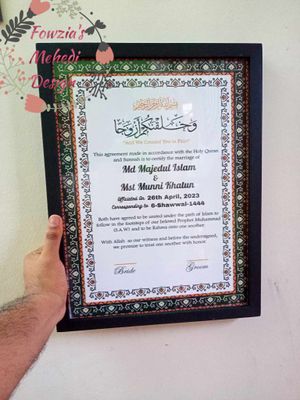 Fowzia's
Mehedi
Design
بسم الله الرحمن الرحيم
وخلقنكم أزواجا
"And We Created You in Pairs"
This agreement made in accordance with the Holy Quran
and Sunnah is to certify the marriage of
Md Majedul Islam
&
Mst Munni Khatun
Affiliated On 26th April, 2023
Corresponding to 6-Shawwal-1444
Both have agreed to be united under the path of Islam to
follow in the footsteps of our beloved Prophet Muhammad
(S.A.W) and to Rahma into one another.
With Allah as our witness and before the undersigned,
we promise to treat one another with honor.
Bride Groom